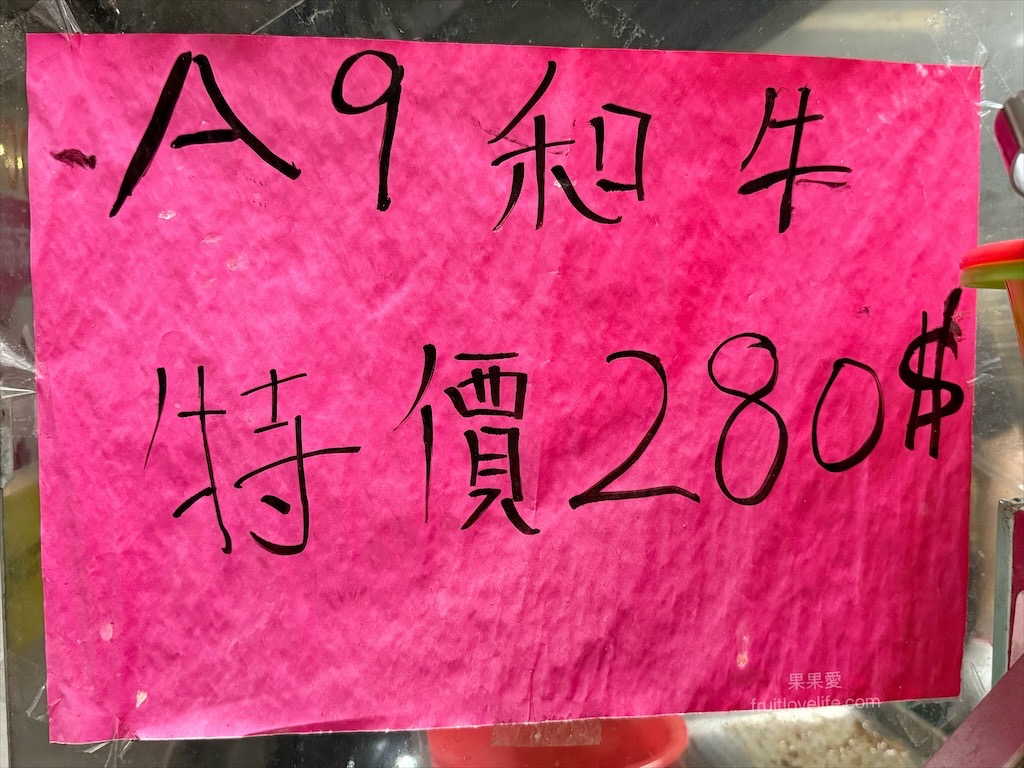 A9和牛
特價280$
果果愛
fruitlovelife.com